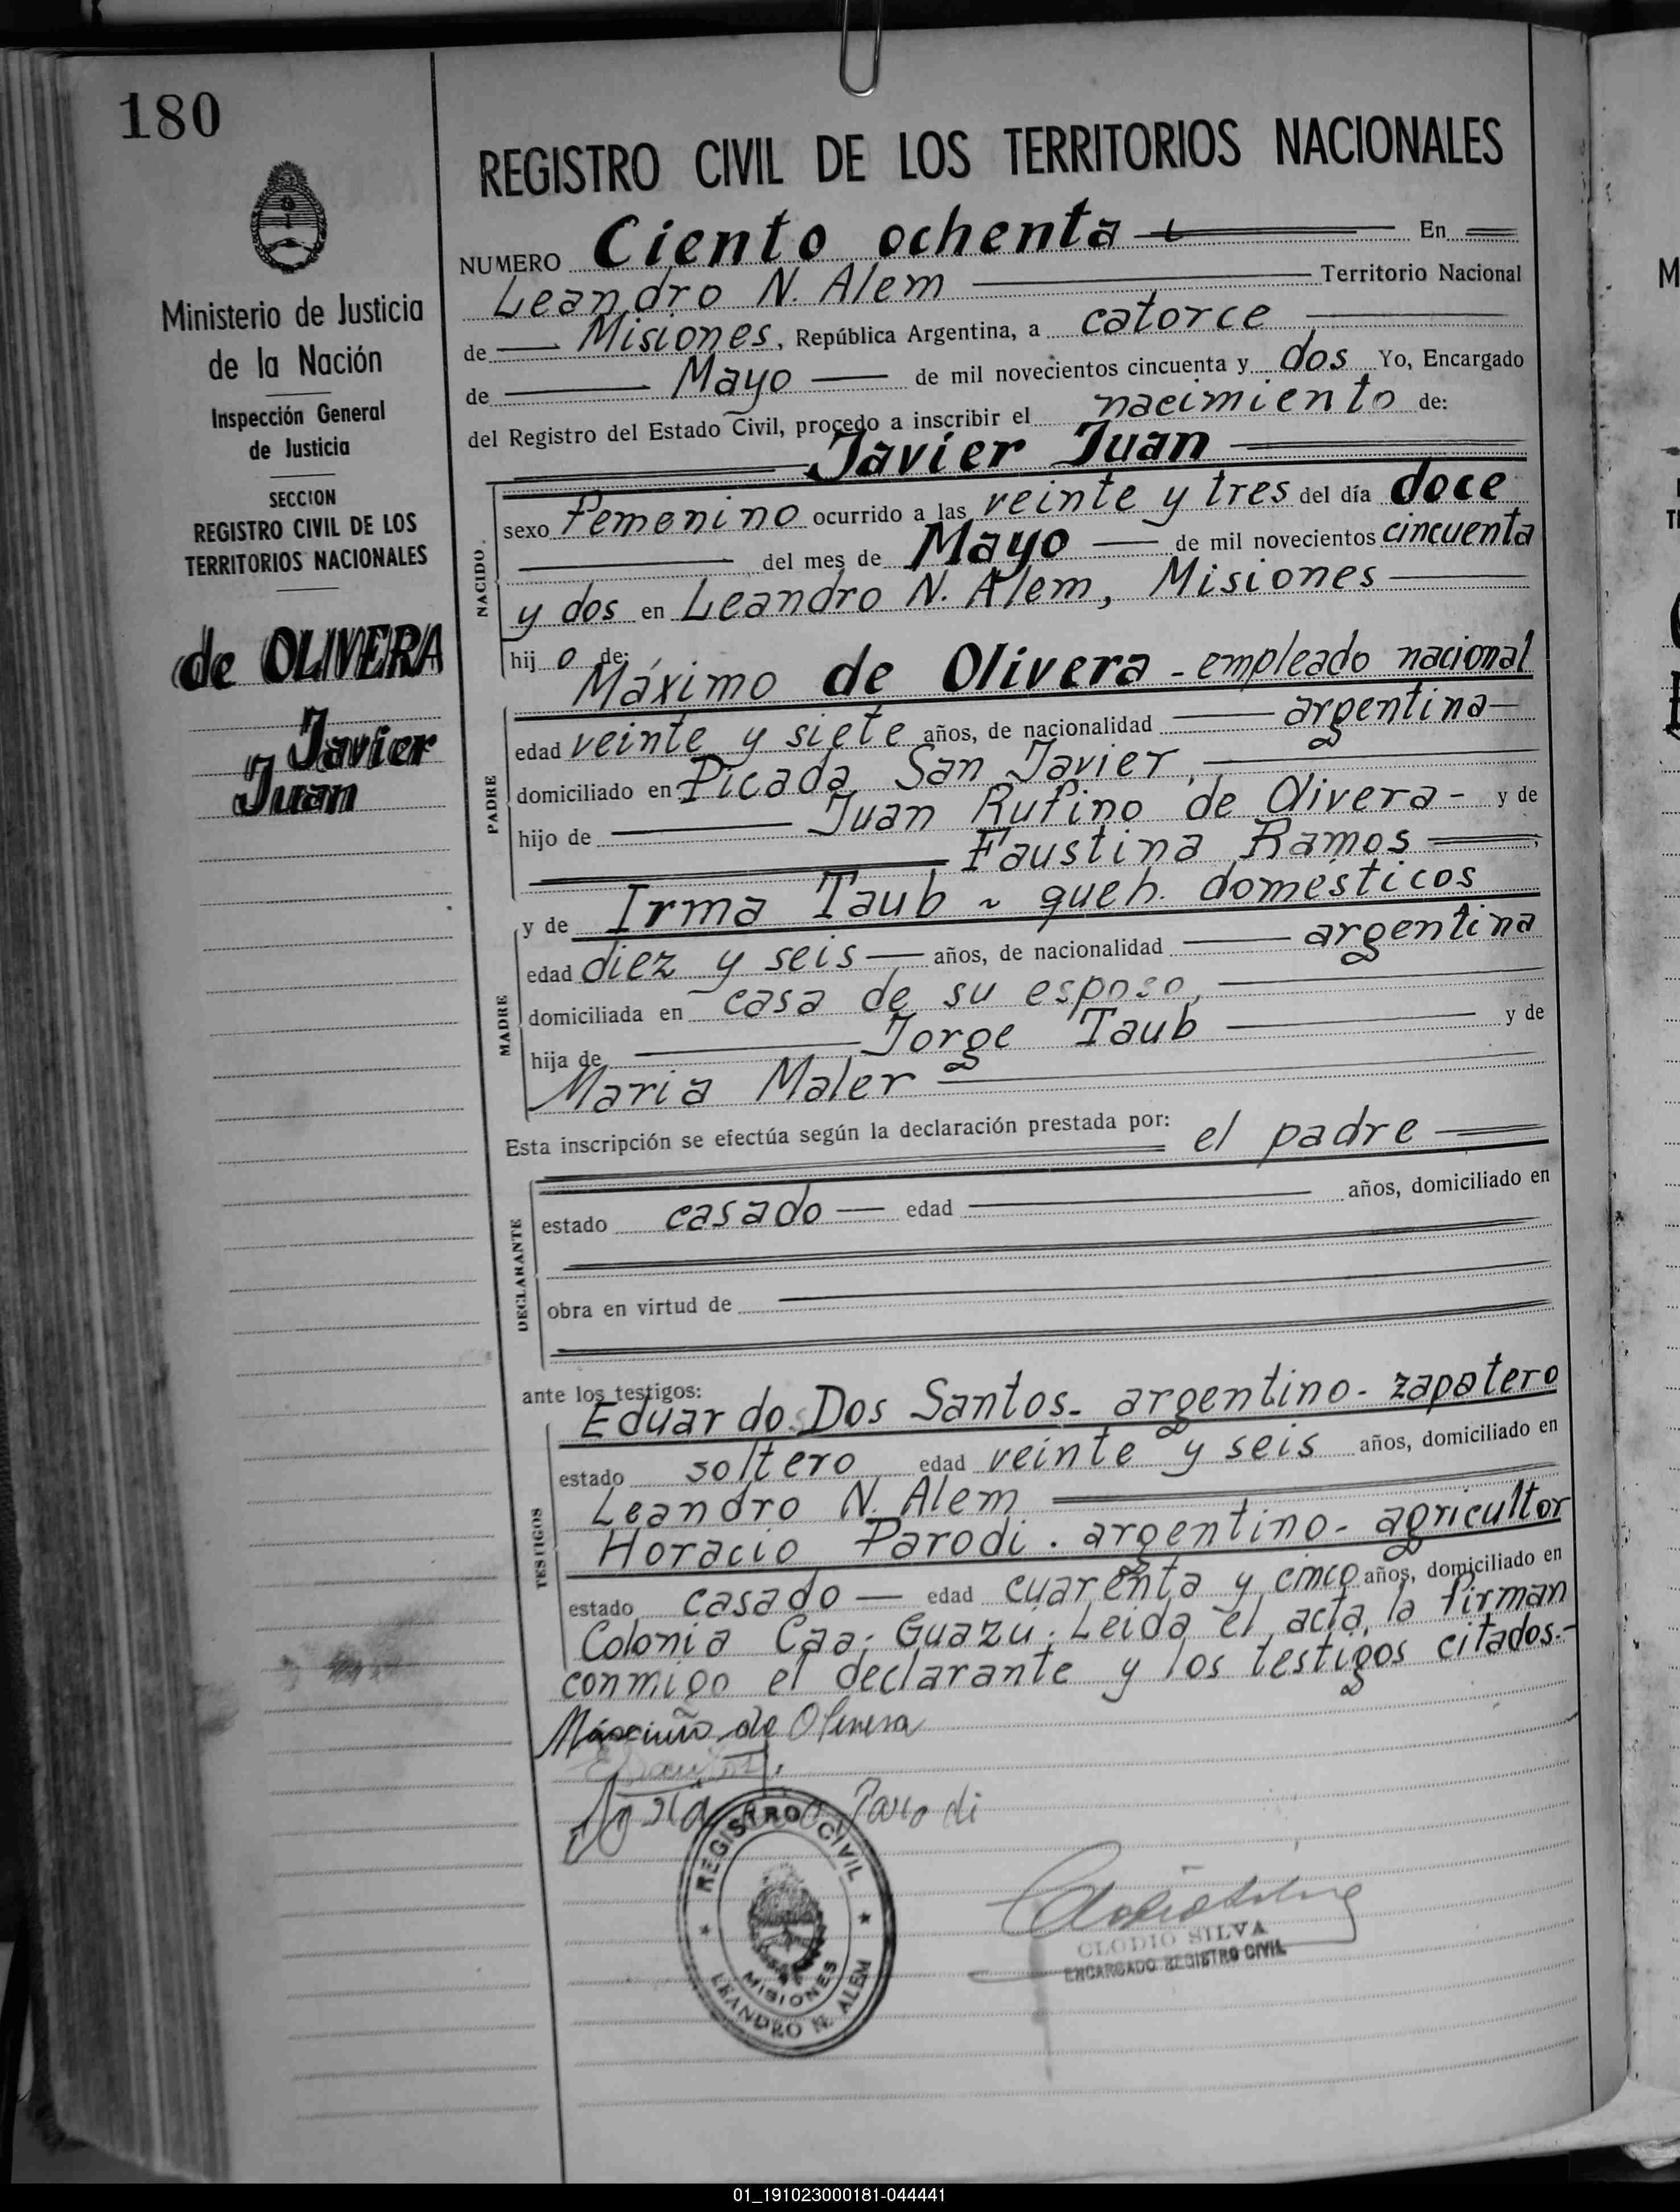 180
REGISTRO CIVIL DE LOS TERRITORIOS NACIONALES
Ministerio de Justicia
de la Nación
Inspección General
de Justicia
SECCION
REGISTRO CIVIL DE LOS
TERRITORIOS NACIONALES
de OLIVERA
Javier
Juan
NUMERO Ciento ochenta En
Leandro N. Alem Territorio Nacional
de Misiones, República Argentina, a catorce
de Mayo de mil novecientos cincuenta y dos Yo, Encargado
del Registro del Estado Civil, procedo a inscribir el nacimiento de:
Javier Juan
NACIDO
sexo Femenino ocurrido a las veinte y tres del día doce
del mes de Mayo de mil novecientos cincuenta
y dos en Leandro N. Alem, Misiones
hij o de:
PADRE
Máximo de Olivera - empleado nacional
edad veinte y siete años, de nacionalidad argentina
domiciliado en Picada San Javier,
hijo de Juan Rufino de Olivera - y de
Faustina Ramos
MADRE
y de Irma Taub ~ queh. domésticos
edad diez y seis años, de nacionalidad argentina
domiciliada en casa de su esposo,
hija de Jorge Taub y de
Maria Maler
Esta inscripción se efectúa según la declaración prestada por: el padre
DECLARANTE
estado casado edad años, domiciliado en
obra en virtud de
ante los testigos:
TESTIGOS
Eduardo Dos Santos - argentino - zapatero
estado soltero edad veinte y seis años, domiciliado en
Leandro N. Alem
Horacio Parodi . argentino - agricultor
estado casado edad cuarenta y cinco años, domiciliado en
Colonia Caa-Guazú. Leida el acta, la firman
conmigo el declarante y los testigos citados.-
Máximo de Olivera
Parodi
REGISTRO CIVIL
MISIONES
LEANDRO N. ALEM
CLODIO SILVA
ENCARGADO REGISTRO CIVIL
01_191023000181-044441